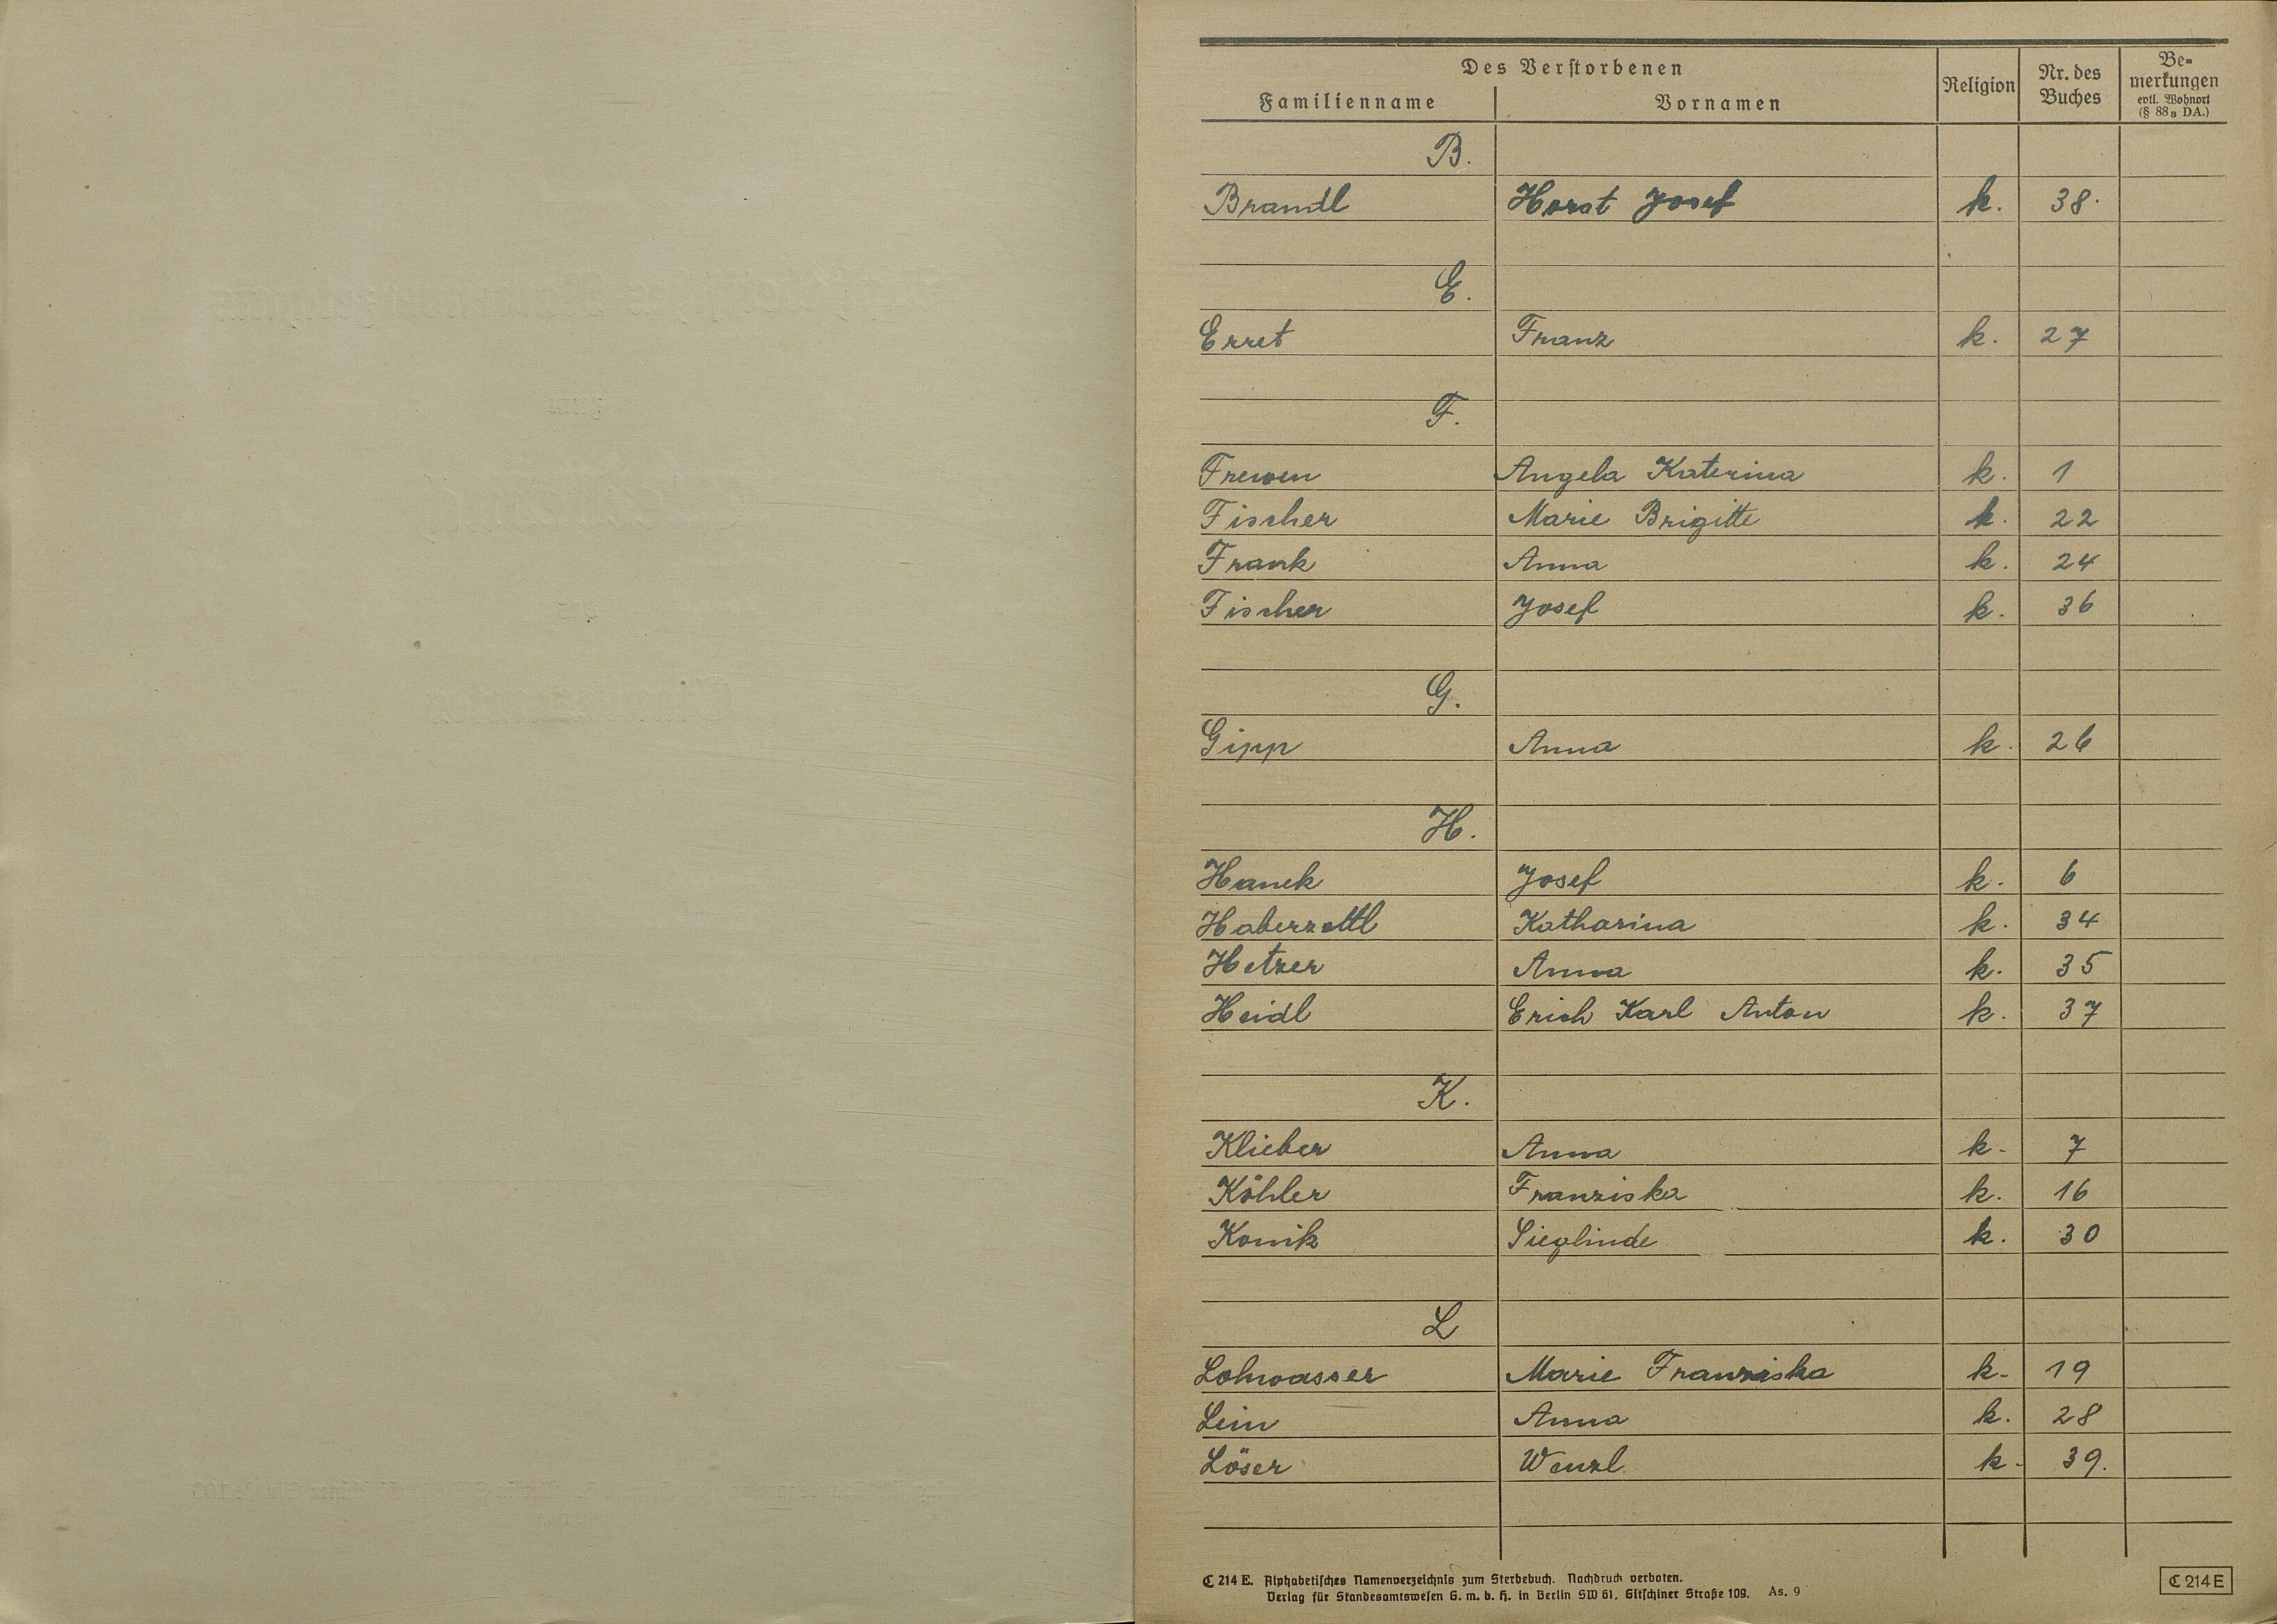 Des Verstorbenen
Familienname Vornamen Religion Nr. des Buches Be= merkungen evtl. Wohnort (§ 88a DA.)
B.
Brandl Horst Josef k. 38.
E.
Erret Franz k. 27
F.
Frewen Angela Katerina k. 1
Fischer Marie Brigitte k. 22
Frank Anna k. 24
Fischer Josef k. 36
G.
Gipp Anna k. 26
H.
Hanek Josef k. 6
Haberzettl Katharina k. 34
Hetzer Anna k. 35
Heidl Erich Karl Anton k. 37
K.
Klieber Anna k. 7
Köhler Franziska k. 16
Konik Sieglinde k. 30
L
Lohwasser Marie Franziska k. 19
Lein Anna k. 28
Löser Wenzl. k. 39.
C 214 E. Alphabetisches Namenverzeichnis zum Sterbebuch. Nachdruck verboten.
Verlag für Standesamtswesen G. m. b. H. in Berlin SW 61, Gitschiner Straße 109. As. 9
C 214 E